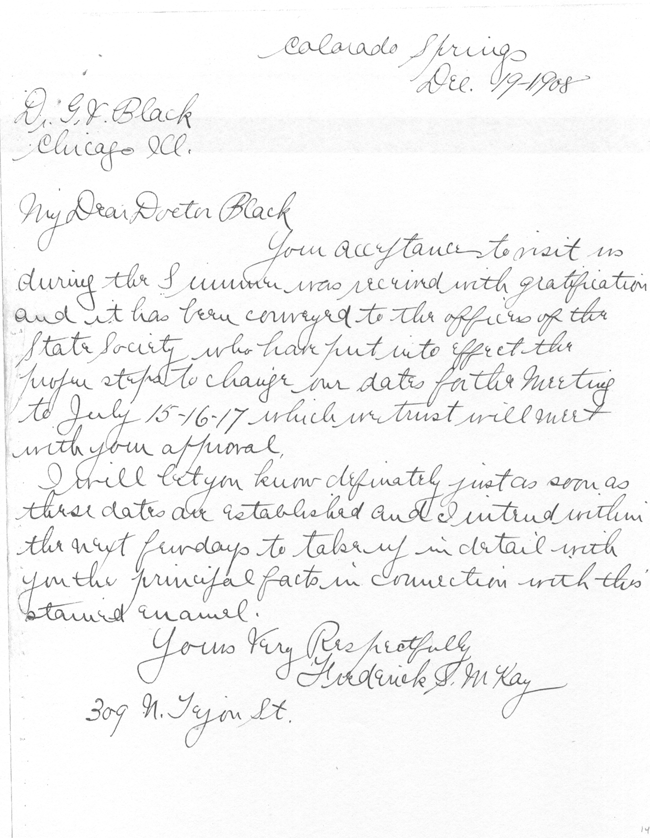 Colorado Springs
Dec. 19-1908
Dr. G.V. Black
Chicago Ill.
My Dear Doctor Black
Your acceptance to visit us
during the Summer was received with gratification
and it has been conveyed to the officers of the
State Society who have put into effect the
proper steps to change our dates for the Meeting
to July 15-16-17 which we trust will meet
with your approval.
I will let you know definately just as soon as
these dates are established and I intend within
the next few days to take up in detail with
you the principal facts in connection with this
stained enamel.
Yours Very Respectfully
Frederick S. McKay
309 N. Tejon St.
14